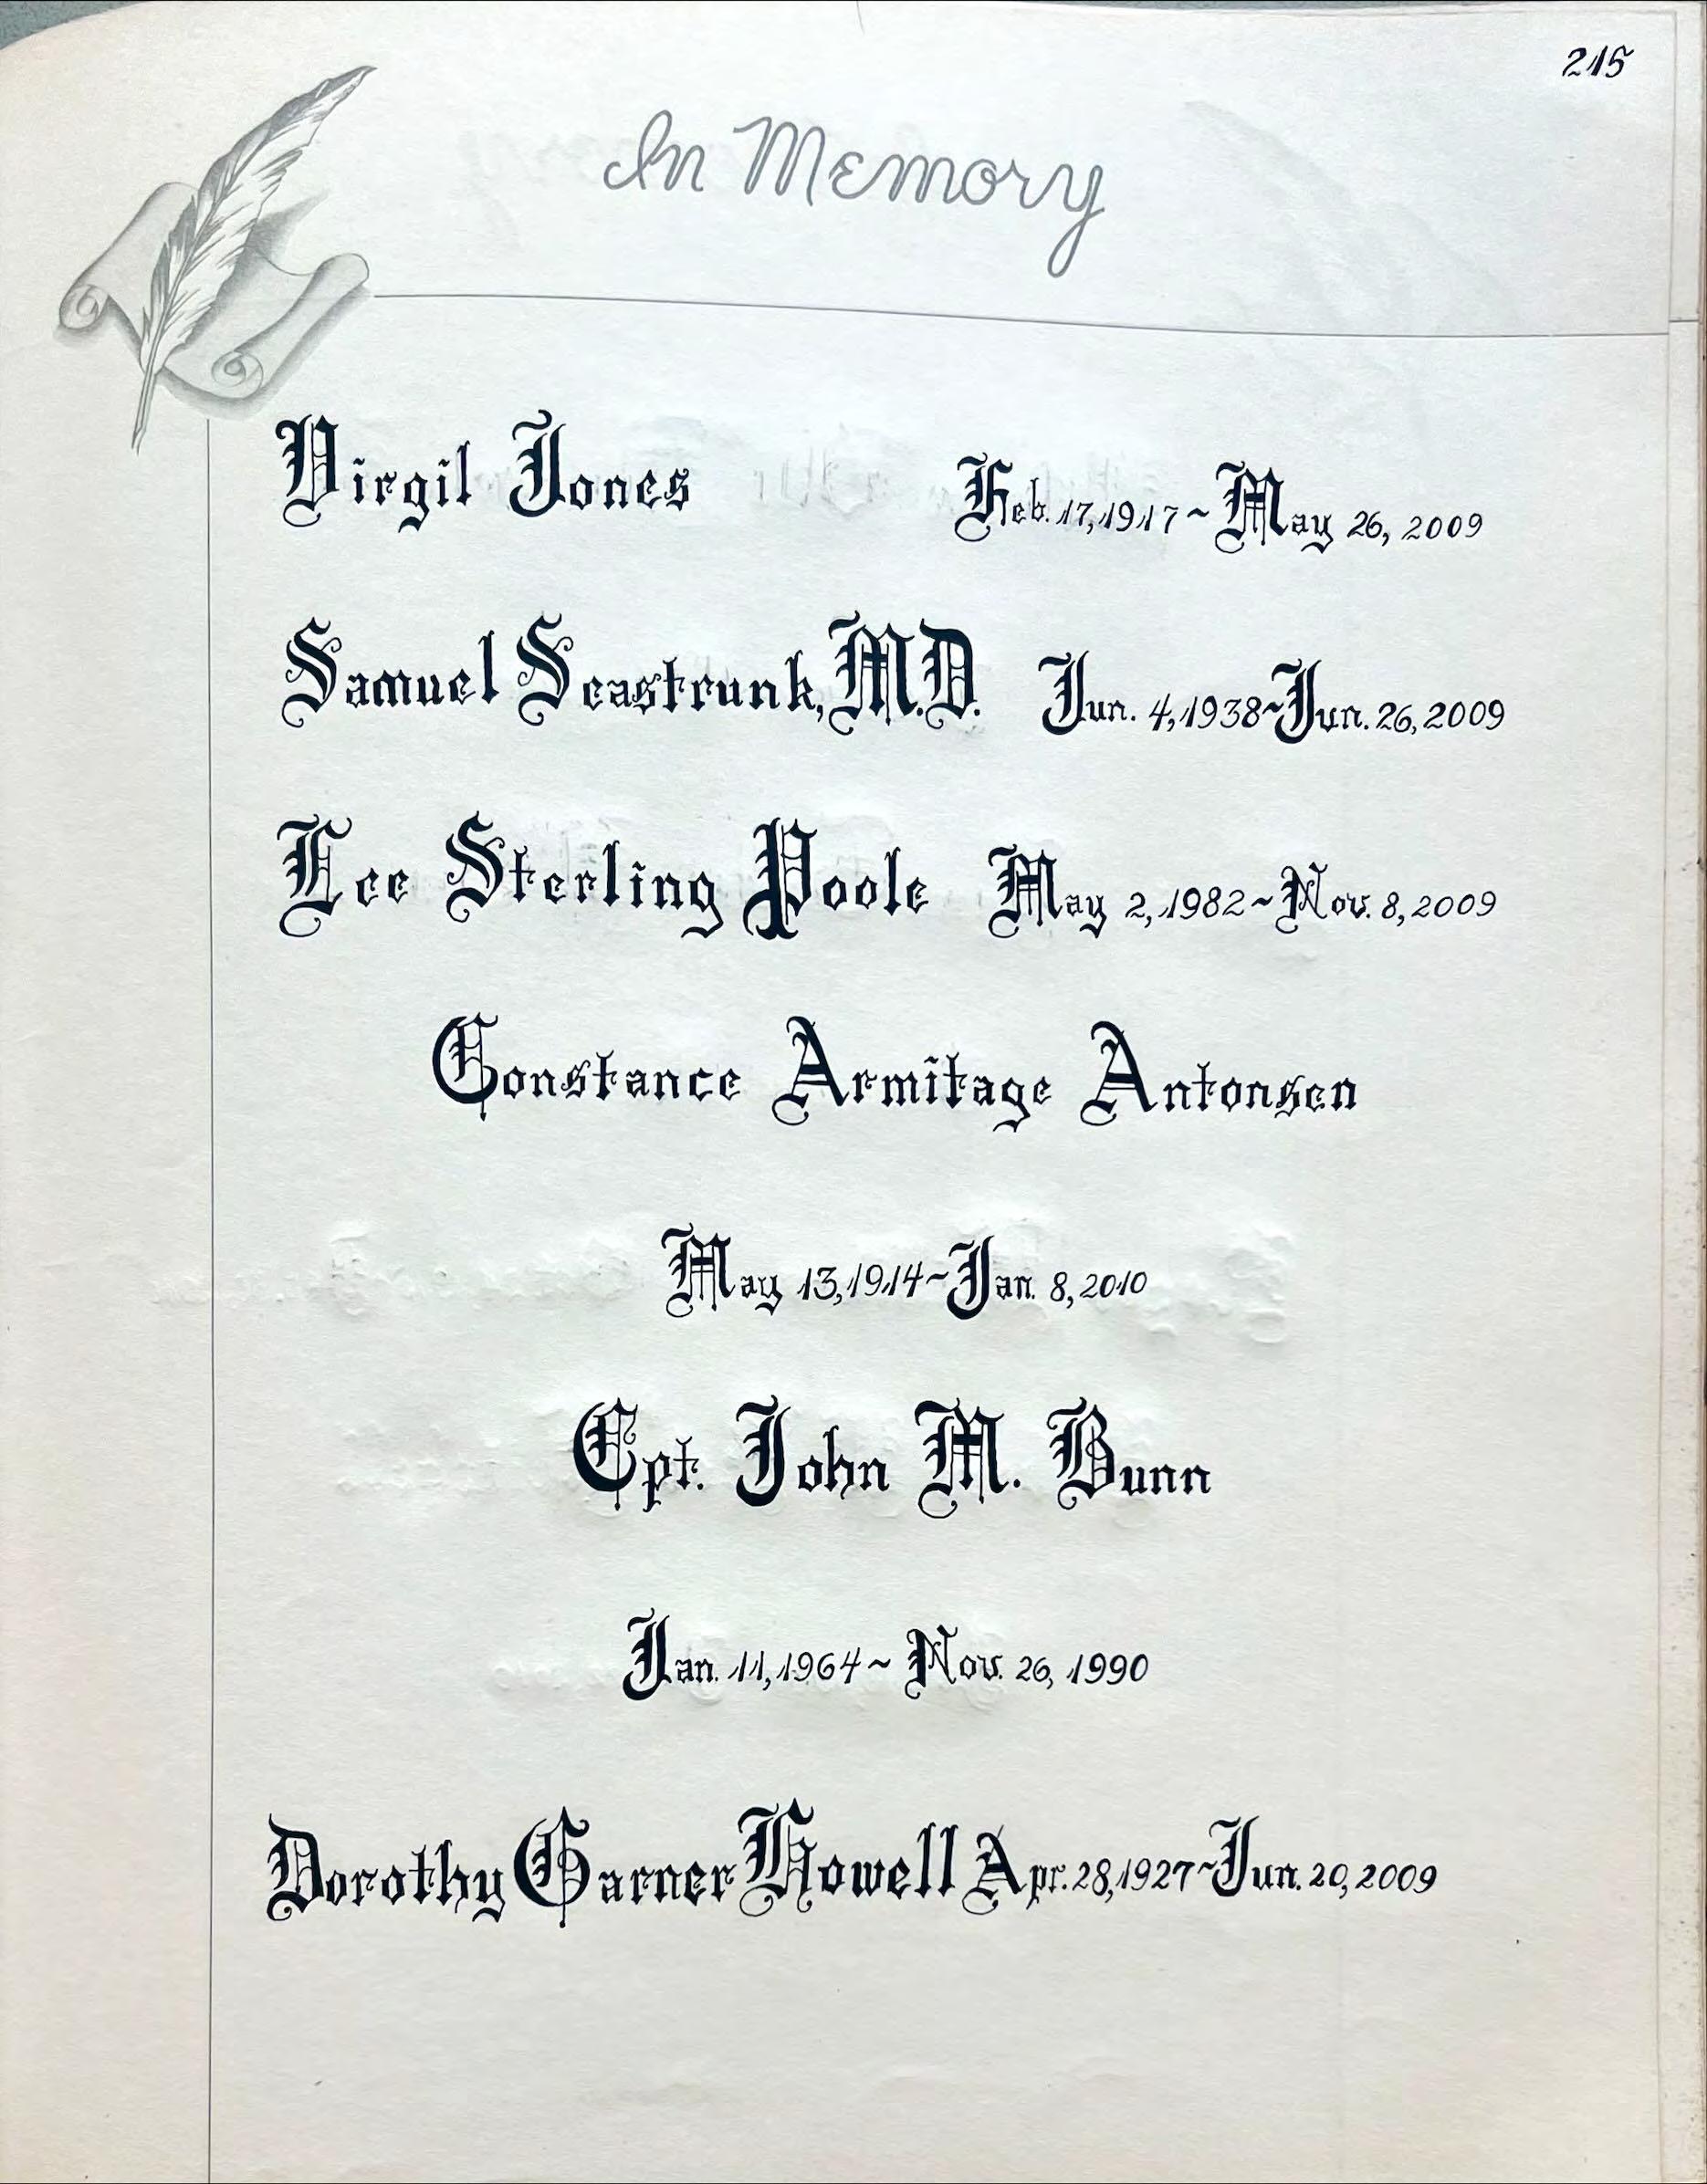 215
In Memory
Virgil Jones Feb. 17, 1917 ~ May 26, 2009
Samuel Seastrunk, M.D. Jun. 4, 1938 ~ Jun. 26, 2009
Lee Sterling Poole May 2, 1982 ~ Nov. 8, 2009
Constance Armitage Antonsen
May 13, 1914 ~ Jan. 8, 2010
Cpt. John M. Bunn
Jan. 11, 1964 ~ Nov. 26, 1990
Dorothy Garner Howell Apr. 28, 1927 ~ Jun. 20, 2009